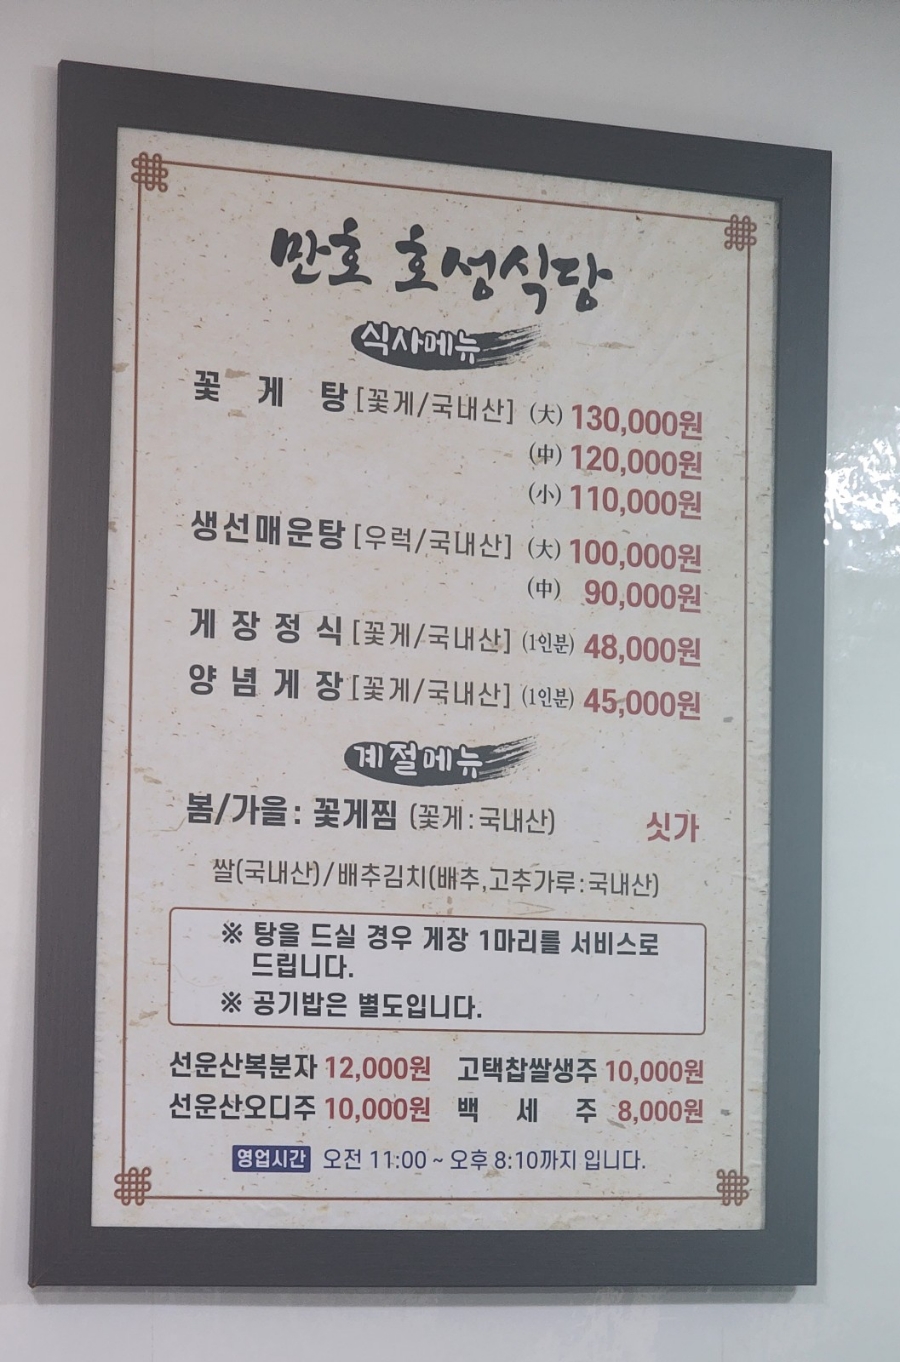 만호 호성식당
식사메뉴
꽃게탕 [꽃게/국내산] (大) 130,000원
(中) 120,000원
(小) 110,000원
생선매운탕 [우럭/국내산] (大) 100,000원
(中) 90,000원
게장정식 [꽃게/국내산] (1인분) 48,000원
양념게장 [꽃게/국내산] (1인분) 45,000원
계절메뉴
봄/가을: 꽃게찜 (꽃게:국내산) 싯가
쌀(국내산)/배추김치(배추,고추가루:국내산)
※ 탕을 드실 경우 게장 1마리를 서비스로
드립니다.
※ 공기밥은 별도입니다.
선운산복분자 12,000원 고택찹쌀생주 10,000원
선운산오디주 10,000원 백세주 8,000원
영업시간 오전 11:00 ~ 오후 8:10까지 입니다.